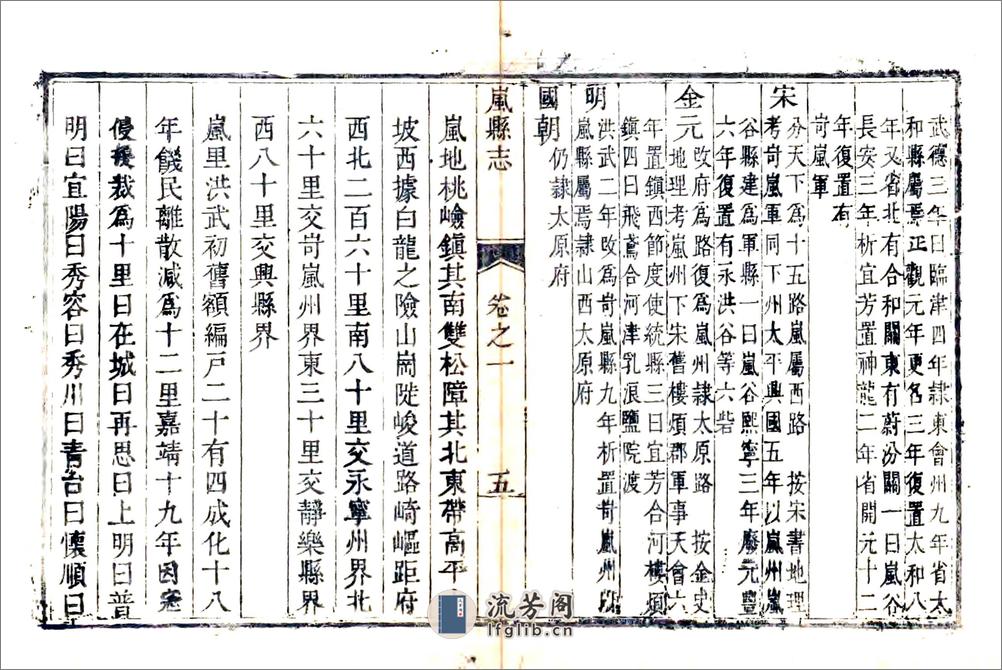 武德三年曰臨津四年隸東會州九年省太
和縣屬焉正觀元年更名三年復置太和八
年又省北有合和關東有蔚汾關一曰嵐谷
長安三年析宜芳置神龍二年省開元十二
年復置有
岢嵐軍
宋
分天下爲十五路嵐屬西路　按宋書地理
考岢嵐軍同下州太平興國五年以嵐州嵐
谷縣建爲軍縣一曰嵐谷熙寧三年廢元豐
六年復置有永洪谷等六砦
金元
改府爲路復爲嵐州隸太原路　按金史
地理考嵐州下宋舊樓煩郡軍事天會六
年置鎮西節度使統縣三曰宜芳合河樓煩
鎮四曰飛鳶合河津乳浪鹽院渡
明
洪武二年改爲岢嵐縣九年析置岢嵐州
嵐縣屬焉隸山西太原府
國朝
仍隸太原府
嵐縣志　卷之一　五
嵐地桃嶮鎮其南雙松障其北東帶高平
坡西據白龍之險山崗陡峻道路崎嶇距府
西北二百六十里南八十里交永寧州界北
六十里交岢嵐州界東三十里交靜樂縣界
西八十里交興縣界
嵐里洪武初舊額編戸二十有四成化十八
年饑民離散減爲十二里嘉靖十九年因寇
侵擾裁爲十里曰在城曰再思曰上明曰普
明曰宜陽曰秀容曰秀川曰青台曰懷順曰
流芳阁
lfglib.cn